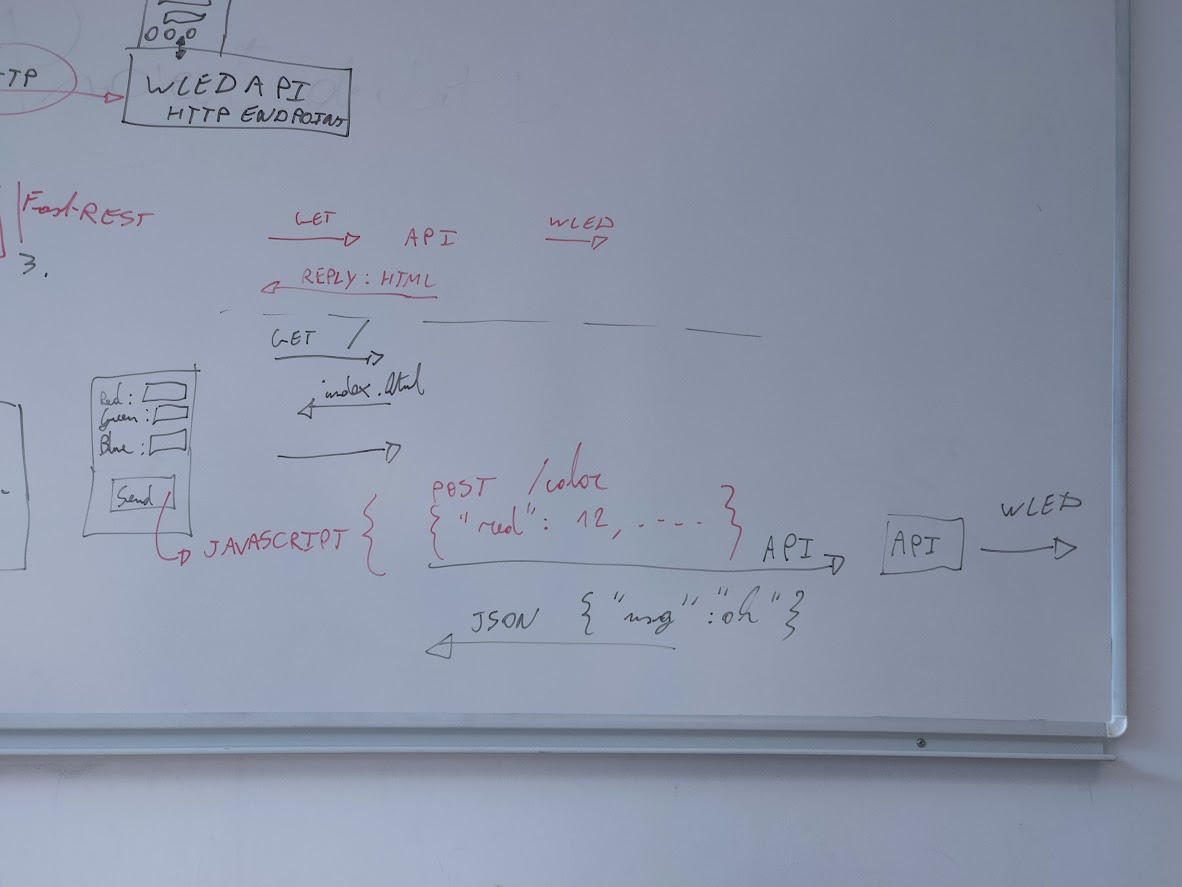 TTP
WLED API
HTTP ENDPOINT
Fast-REST
3.
GET
API
WLED
REPLY: HTML
GET /
index.html
Red:
Green:
Blue:
Send
JAVASCRIPT {
POST /color
{"red": 12, ---- }
API
API
WLED
JSON {"msg":"oh"}